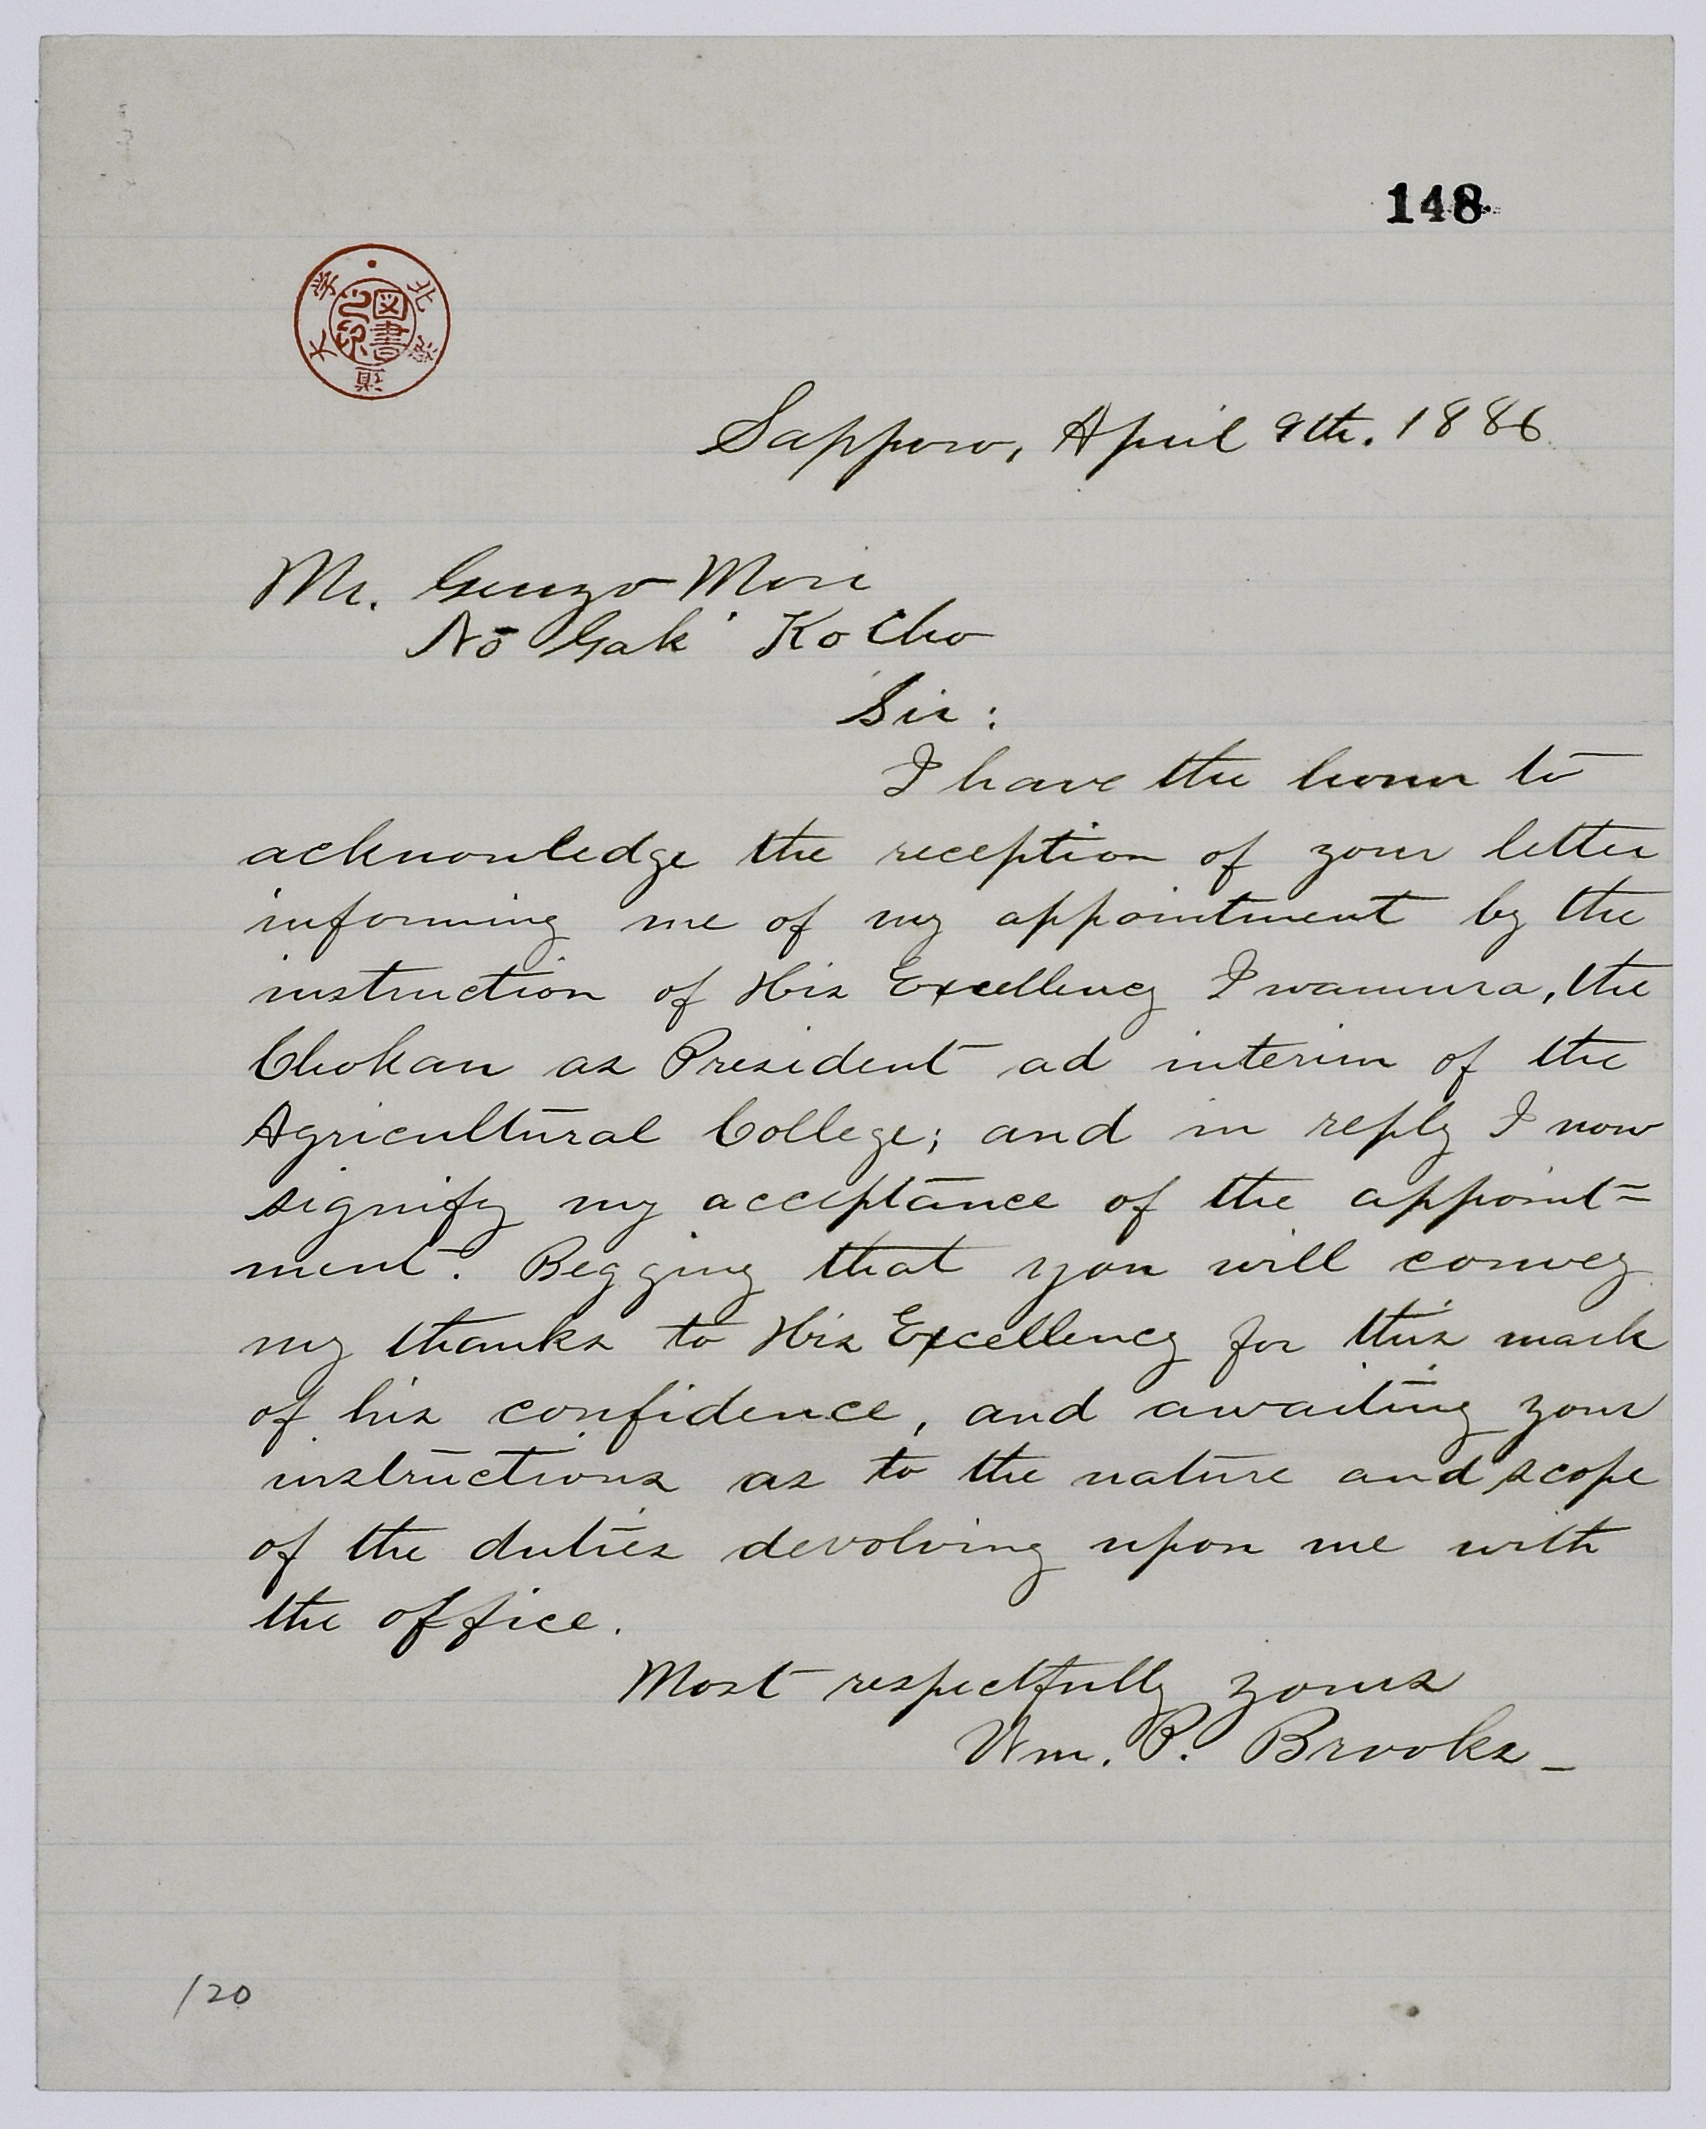 148
北海道大学
図書之印
Sapporo, April 9th. 1886.
Mr. Genzo Mori
Nō Gak' Ko Cho
Sir:
I have the honor to
acknowledge the reception of your letter
informing me of my appointment by the
instruction of His Excellency Iwamura, the
Chokan as President ad interim of the
Agricultural College; and in reply I now
signify my acceptance of the appoint=
ment. Begging that you will convey
my thanks to His Excellency for this mark
of his confidence, and awaiting your
instructions as to the nature and scope
of the duties devolving upon me with
the office.
Most respectfully yours
Wm. P. Brooks_
120